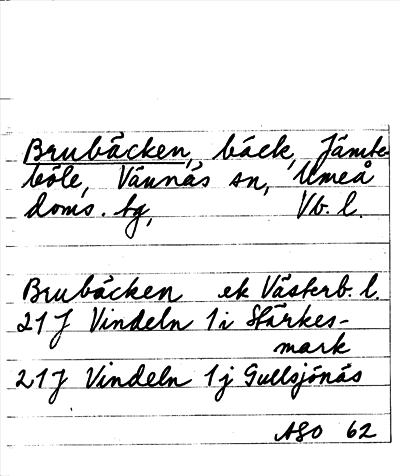 Brubäcken, bäck, Jämte-
böle, Vännäs sn, Umeå
doms. tg, Vb. l.
Brubäcken ek Västerb. l.
21J Vindeln 1i Stärkes-
mark
21J Vindeln 1j Gullsjönäs
ASO 62